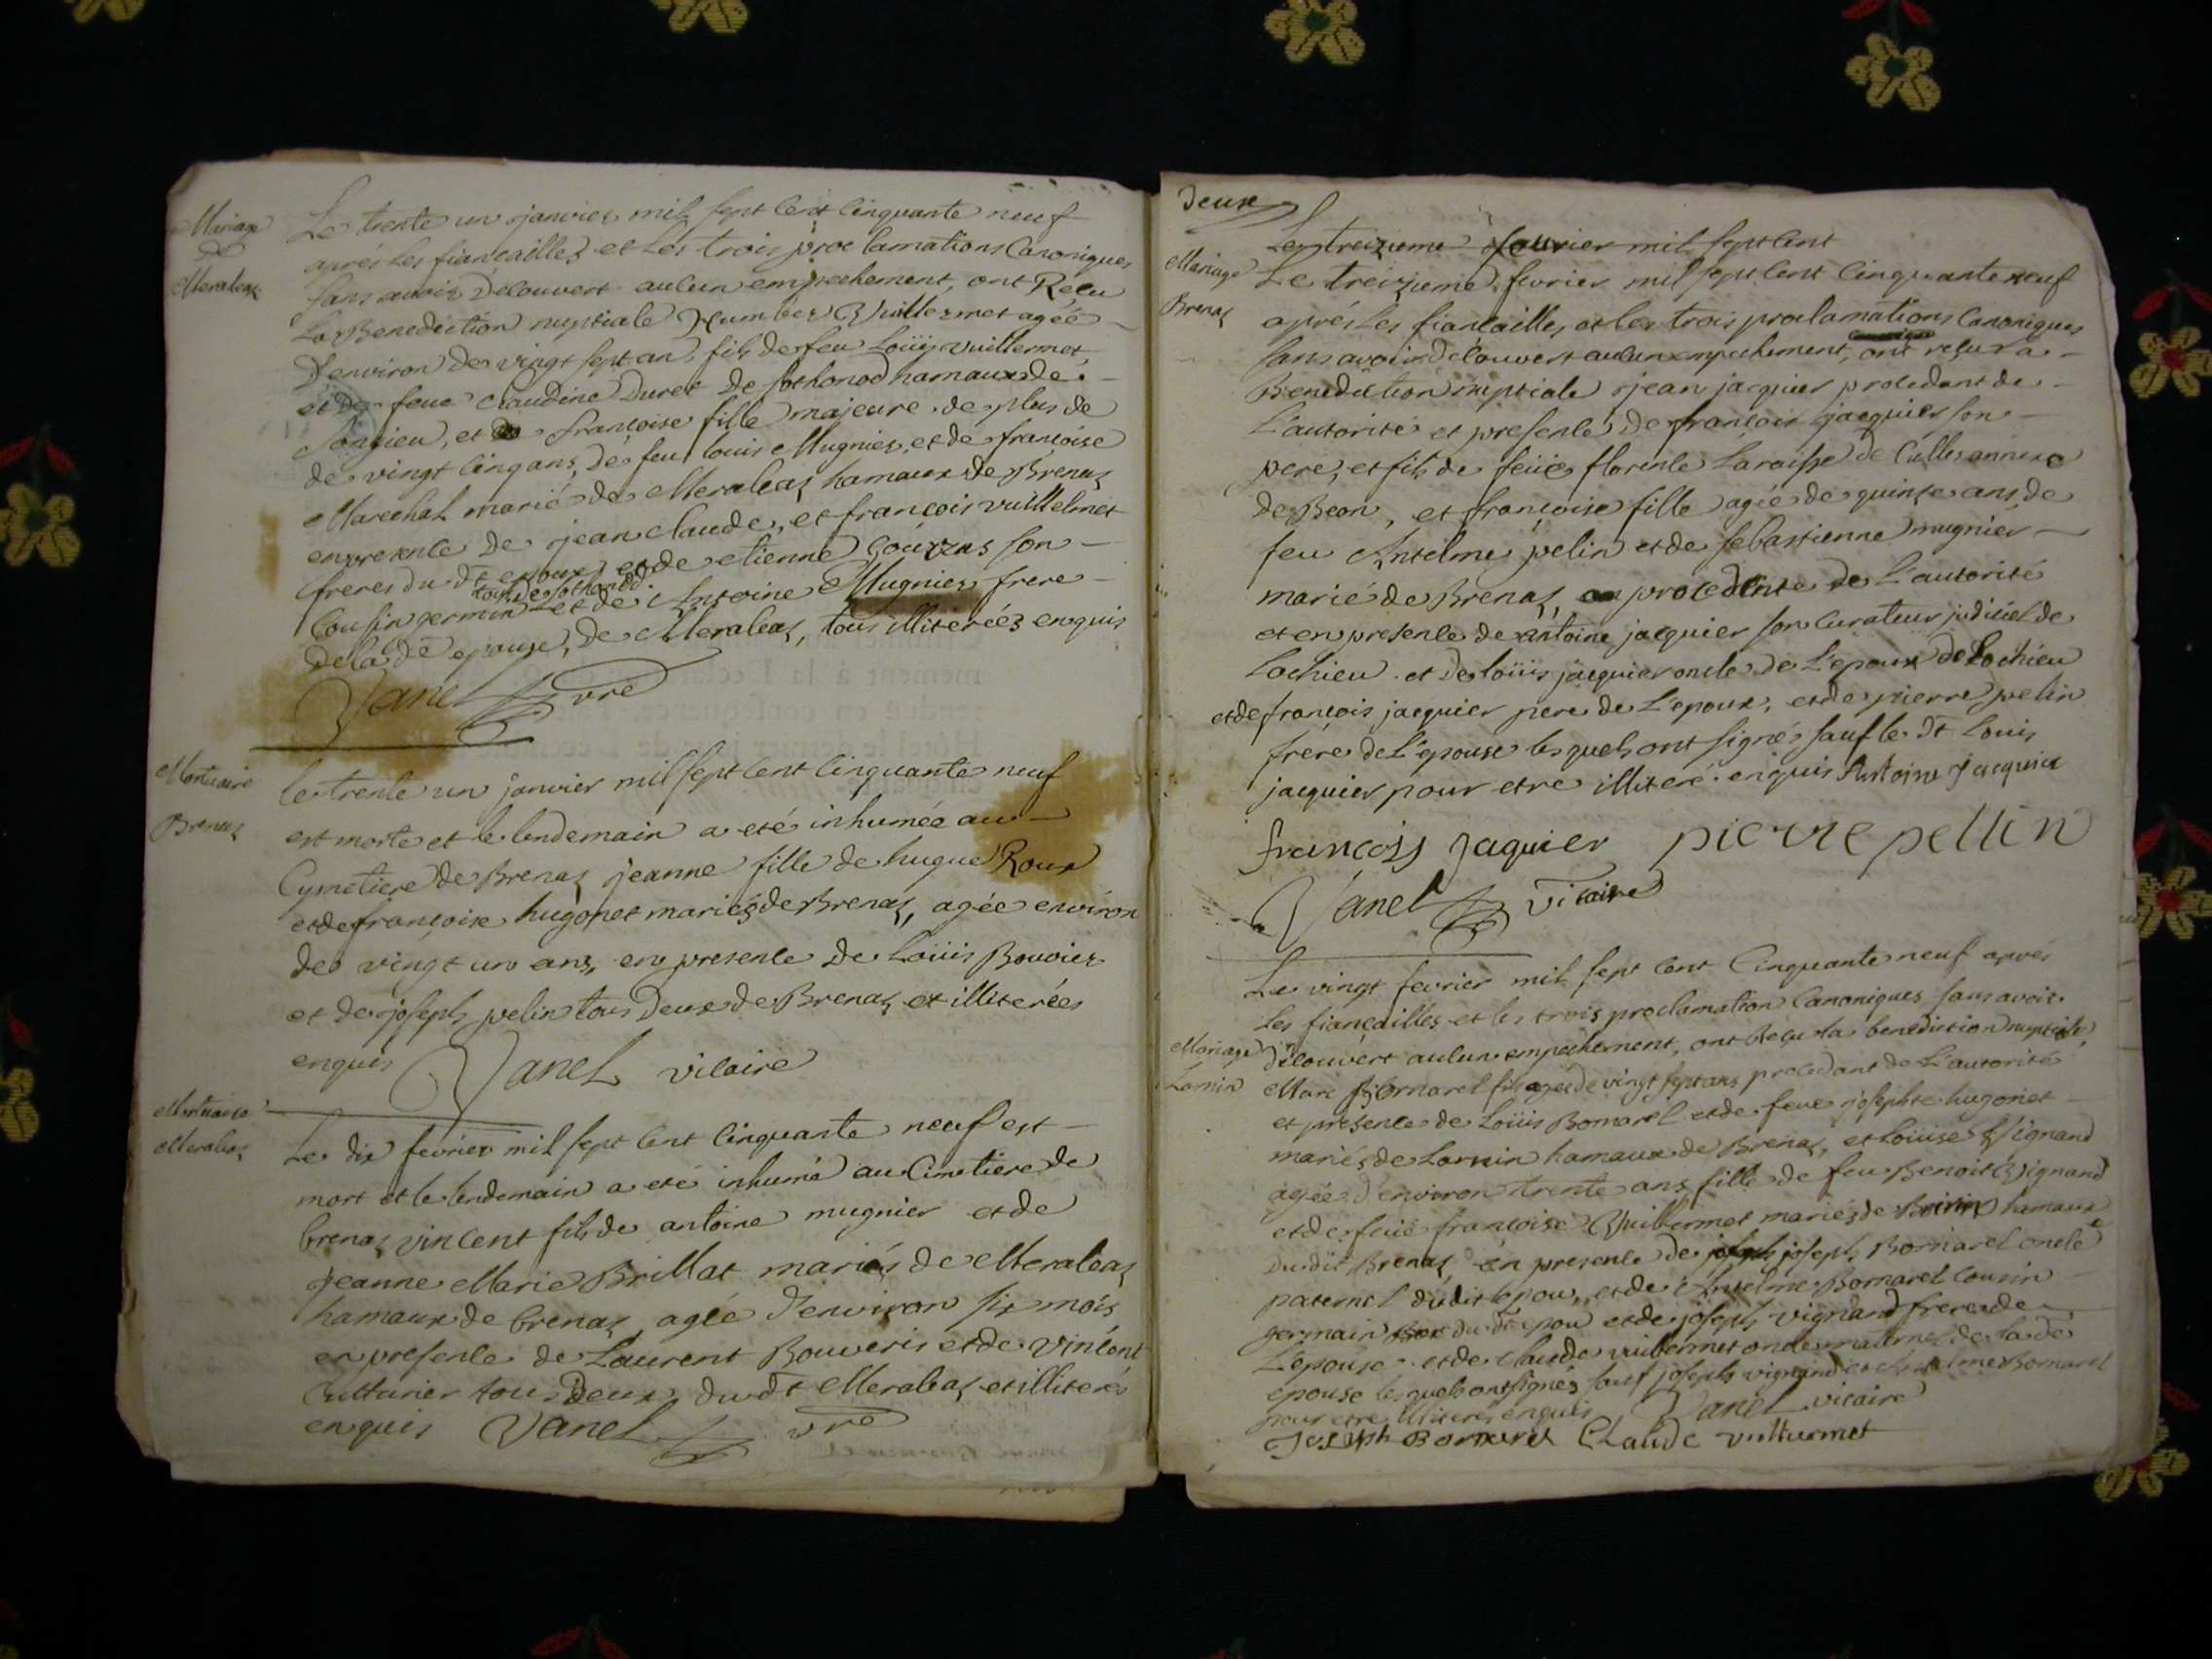 Mariage
de
Meraleaz
Le trente un janvier mil sept cent cinquante neuf
aprés les fiançailles et les trois proclamations Canoniques
sans avoir découvert aucun empechement, ont Reçu
La Benediction nuptiale humber Vuillermet agée
D'environ de vingt sept ans fils de feu Loüis vuillermet
et de feue Claudine Duret de sothonod hamaux de
Songieu, et de francoise fille majeure de plus de
de vingt cinq ans, de feu louis Mugnier, et de françoise
Marechal marié de Meraleaz hamaux de Brenaz
en presence de jean claude, et françois vuillelmet
freres du dt epoux et de etienne Gouzzus son
tous de sothonod.
Cousin germin et de Antoine Mugnier frere
de la de epouse, de Meraleaz, tous illiterées enquis
Vanel vre
Mortuaire
Brenaz
le trente un janvier mil sept cent cinquante neuf
est morte et le lendemain a eté inhumée au
Cymetiere de Brenaz jeanne fille de hugue Roux
et de françoise hugonet mariés de Brenaz, agée environ
de vingt un ans, en presence de Loüis Bouvier
et de joseph pelin tous Deux de Brenaz et illiterées
enquis Vanel vicaire
Mortuaire
Meraleaz
Le dix fevrier mil sept cent cinquante neuf est
mort et le lendemain a eté inhumé au Cimetiere de
brenaz vincent fils de antoine mugnier et de
Jeanne Marie Brillat mariés de Meraleaz
hamaux de brenaz agée d'environ six mois
en presence de Laurent Bouveris et de vincent
Cutturier tous Deux du dt Meraleaz et illiterés
enquis Vanel vre
Deux
Le treizieme fevrier mil sept cent
Mariage
Brenaz
Le treizieme fevrier mil sept cent cinquante neuf
aprés les fiancailles et les trois proclamations Canoniques
sans avoir découvert aucun empechement, ont reçu la
Benediction nuptiale jean jacquier procedant de
L'autorité et presence de françois jacquier son
pere, et fils de feüe florence Laraisse de Culles annexe
de Beon, et françoise fille agée de quinse ans de
feu Antelme pelin et de sebastienne mugnier
marié de Brenaz, procedente de L'autorité
et en presence de antoine jacquier son curateur judiciel de
Lochieu et de loüis jacquier oncle de L'epoux de Lochieu
et de françois jacquier pere de L'epoux, et de pierre pelin
frere de L'epouse lesquels ont signés sauf le dt Louis
jacquier pour etre illiteré enquis Antoine jacquier
françois jaquier pierre pellin
Vanel vicaire
Le vingt fevrier mil sept cent cinquante neuf aprés
les fiançailles et les trois proclamation Canoniques sans avoir
Mariage
Lornin
découvert aucun empechement, ont Reçu la benediction nuptiale,
Marc Bornarel fils agée de vingt sept ans procedant de L'autorité
et presence de Loüis Bornarel et de feue josephte hugonet
mariés de Lornin hamaux de Brenaz, et Loüise Vignand
agée d'environ trente ans fille de feu Benoit Vignand
et de feüe françoise Vuillermet mariés de hamaux
du dit Brenaz en presence de joseph Bornarel oncle
paternel du dit epou, et de Antelme Bornarel cousin
germain du dt epou et de joseph vignand frere de
L'epouse et de claude vuillermet oncle maternel de la de
epouse lesquels ont signés sauf joseph vignand et Antelme Bornarel
pour etre illiterés enquis Vanel vicaire
Joseph Bornarel Claude vullliermet